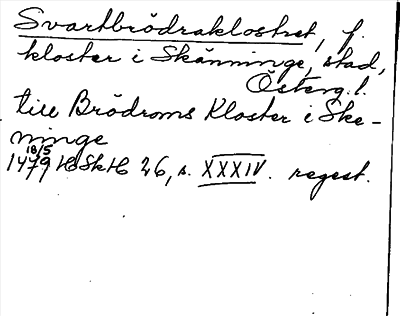 Svartbrödraklostret, f.
kloster i Skänninge, stad,
Österg. l.
till Brödroms Kloster i Ske-
ninge
18/5
1479 HSkH 26, s. XXXIV. regest.